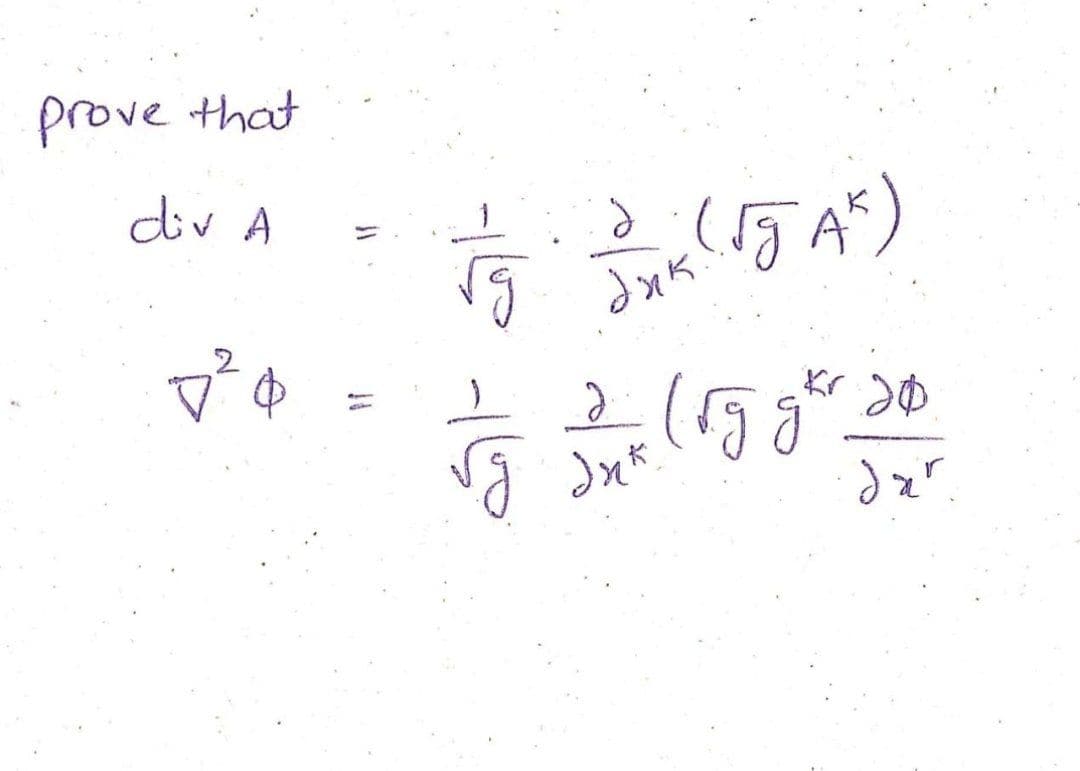 prove that
div A = 1/√g · ∂/∂xᴷ (√g Aᴷ)
∇²Φ = 1/√g ∂/∂xᴷ (√g gᴷʳ ∂Φ/∂xʳ